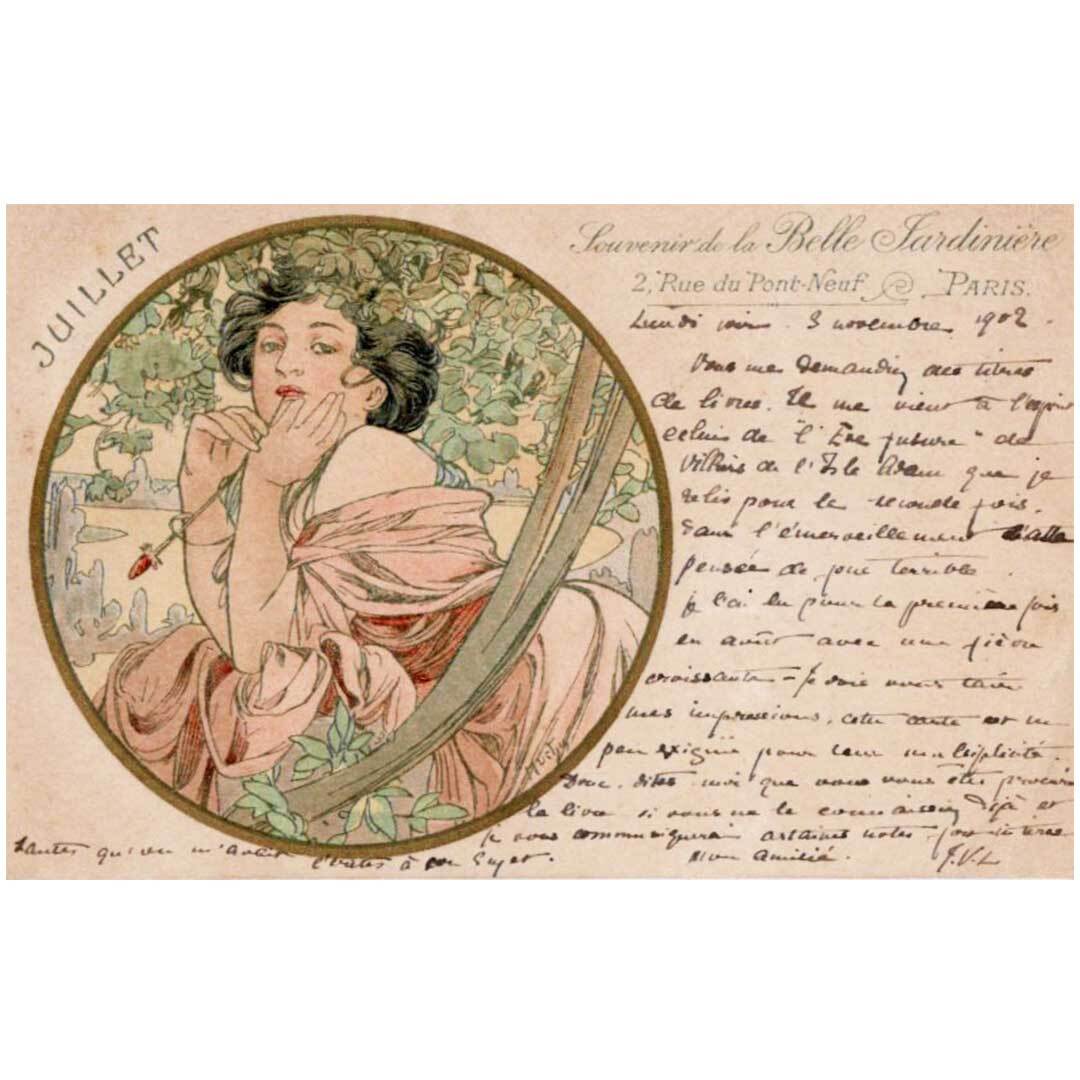 JUILLET
Souvenir de la Belle Jardinière
2, Rue du Pont-Neuf PARIS.
Lundi soir. 3 novembre 1902.
Vous me demandiez des titres
de livres. Il me vient à l'esprit
celui de "l'Ève future" de
Villiers de l'Isle Adam que je
relis pour la seconde fois.
dans l'émerveillement
pensée de joie terrible.
je l'ai lu pour la première fois
en août avec une fièvre
croissante - Je dois vous taire
mes impressions, cette carte est un
peu exigüe pour leur multiplicité.
Donc, dites-moi que vous vous êtes procuré
le livre si vous ne le connaissiez déjà et
je vous communiquerai certaines notes
qu'on m'avait à son sujet.
Mon amitié. J.V.L
Mucha